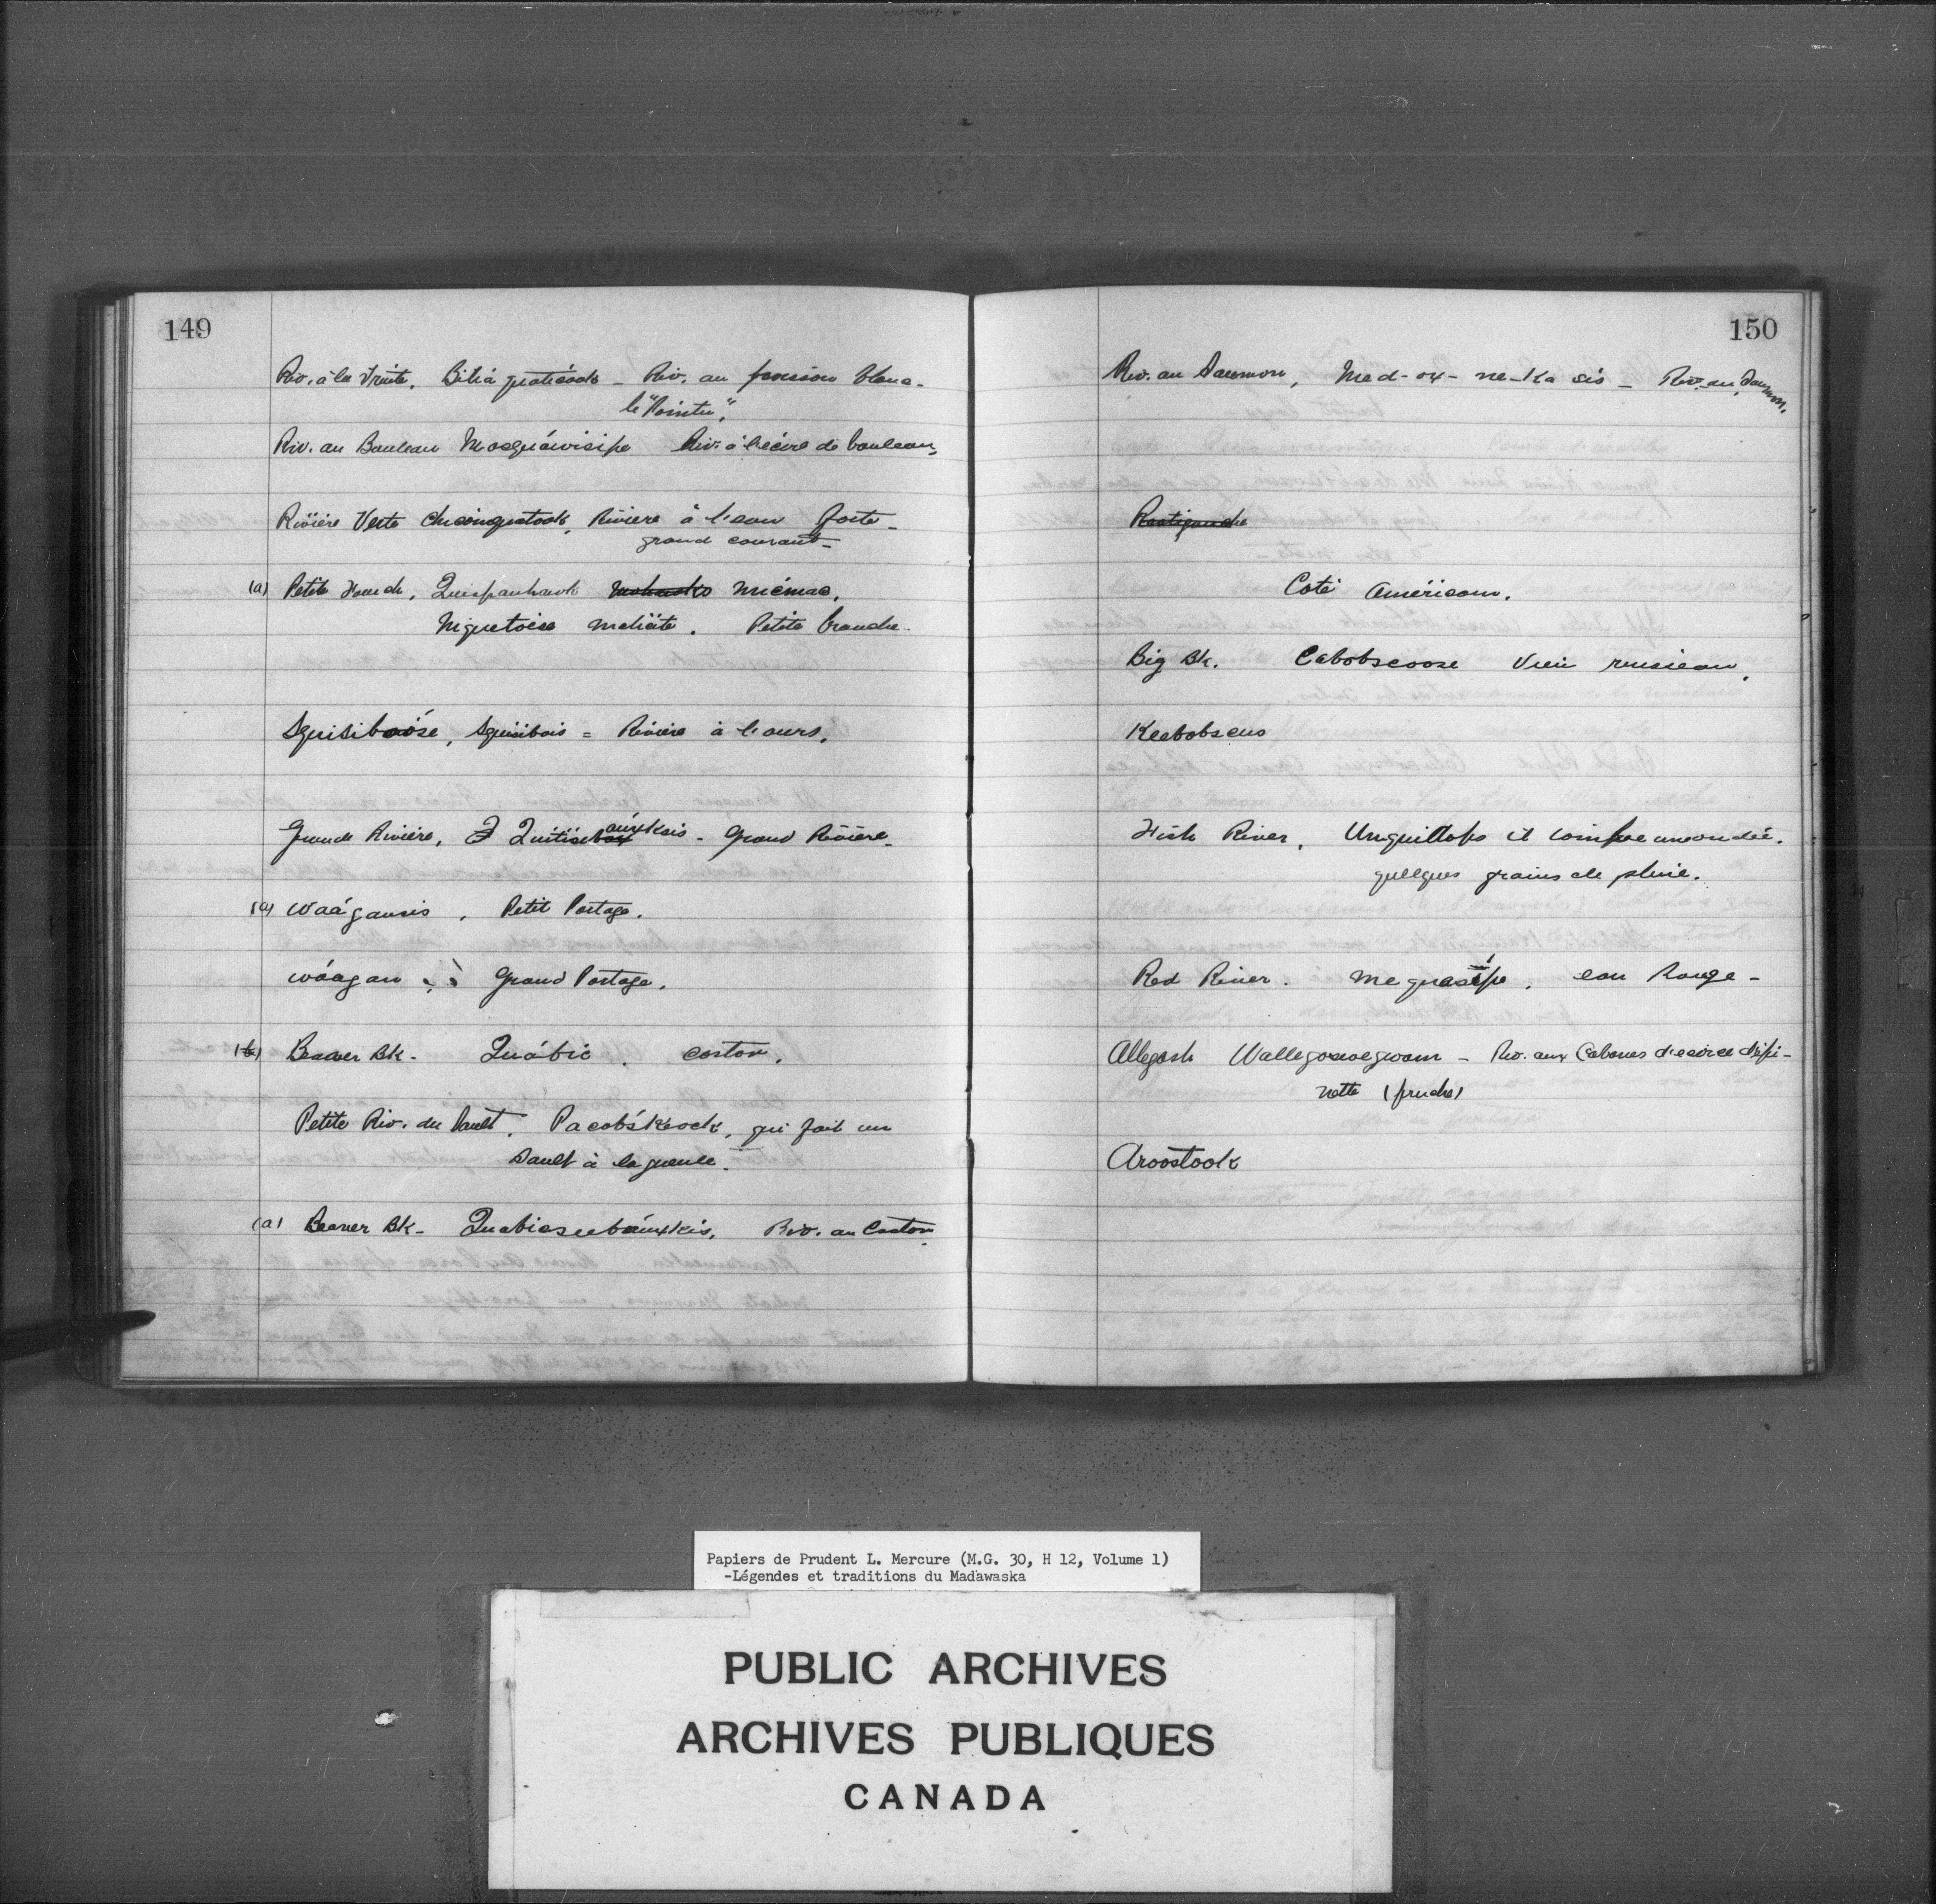 149
Riv. à la Truite, Bitiá quatícook - Riv. au poisson blanc.
le "Pointu",
Riv. au Bouleau Masquáwisipe Riv. à l'écore de bouleau,
Rivière Verte Chiconquatook, Rivière à l'eau forte -
grand courant -
(a) Petite Fourche, Quispanhawk micmac,
Niquetoese malicite. Petite branche -
Squisiboóse, Squisibois = Rivière à l'ours.
Grande Rivière, Grand Rivière.
(a) Waágansis, Petit Portage.
Wáagan " " Grand Portage.
(b) Beaver Bk - Quábic. castor.
Petite Riv. du Sault, Pacobskeock, qui fait un
Sault à la gueule.
(a) Beaver Bk - Riv. au Castor.
150
Riv. au Saumon, Med-ox-ne-ka sis - Riv. au Saumon.
Restigouche
Coté Américain.
Big Bk. Cabobscoose Vrai ruisseau.
Keebobscus
Fish River, Unquillops il tombe une ondée.
quelques grains de pluie.
Red River. Mequasípe, eau Rouge -
Allegash Wallegoswegwam - Riv. aux Cabanes d'écorce d'épi-
nette (pruche)
Aroostook
Papiers de Prudent L. Mercure (M.G. 30, H 12, Volume 1)
-Légendes et traditions du Madawaska
PUBLIC ARCHIVES
ARCHIVES PUBLIQUES
CANADA